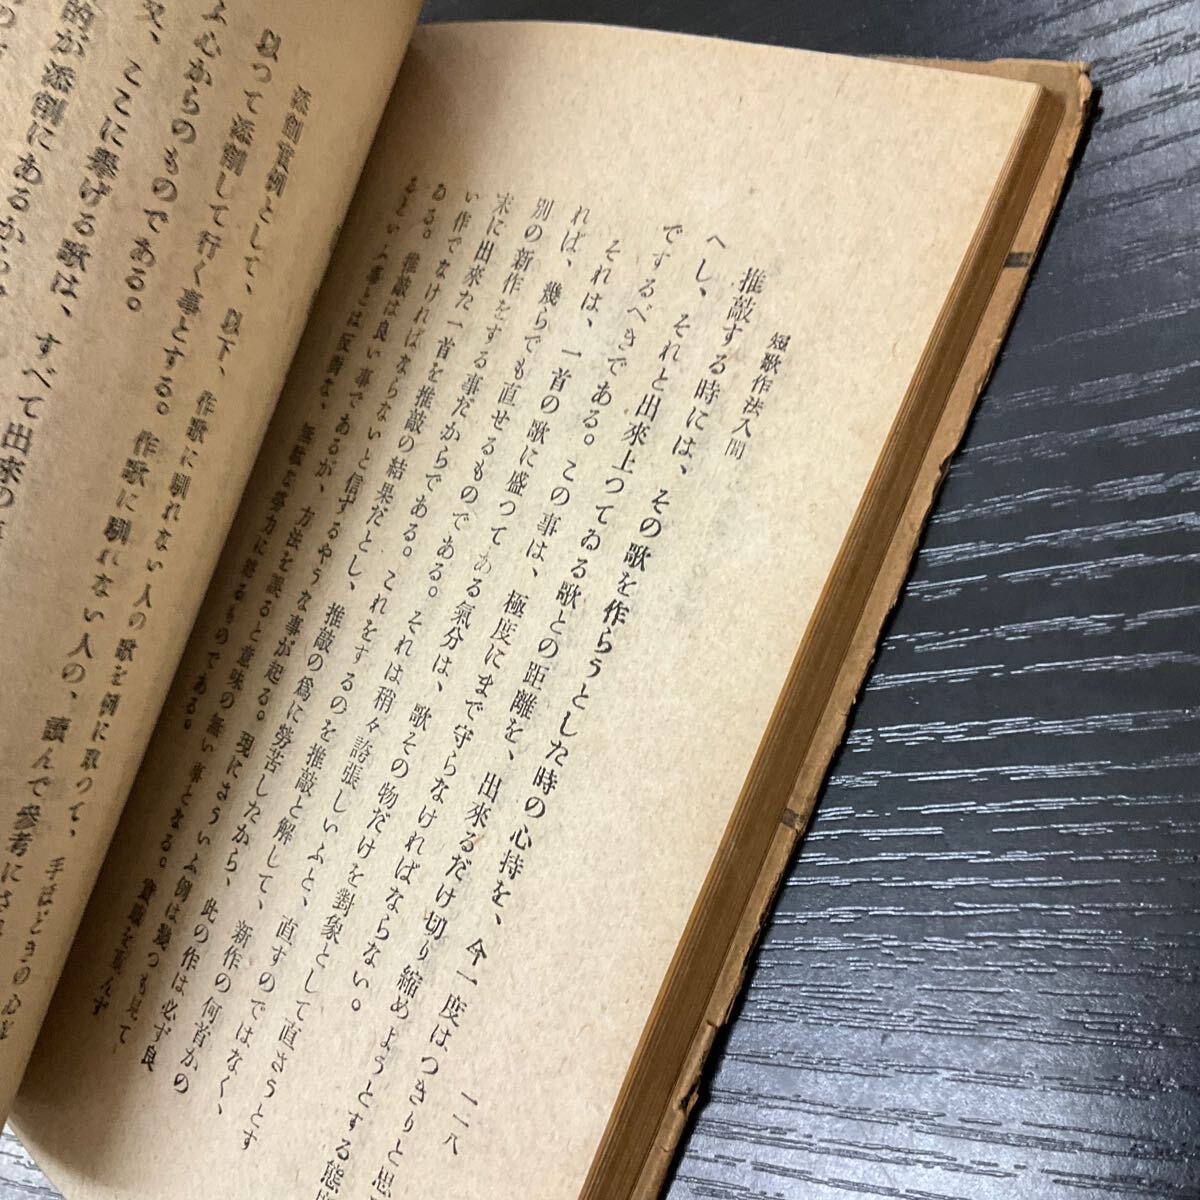 短歌作法入門
一二八
推敲する時には、その歌を作らうとした時の心持を、今一度はつきりと思
へし、それと出來上つてゐる歌との距離を、出來るだけ切り縮めようとする態度
でするべきである。この事は、極度にまで守らなければならない。
それは、一首の歌に盛つてある氣分は、歌その物だけを對象として直さうとす
れば、幾らでも直せるものである。それは稍々誇張しいふと、
別の新作をする事だからである。これをするのを推敲と解して、直すのではなく、新作の何首かの
末に出來た一首を推敲の結果だとし、推敲の爲に勞苦したから、此の作は必ず良
い作でなければならないと信ずるやうな事が起る。現にさういふ例は幾つも見て
ゐる。推敲は良い事であるが、方法を誤ると意味の無い事となる。實感を重んず
るといふ事とは反對な、無駄な努力に終るものである。
添削實例として、以下、作歌に馴れない人の歌を例に取りて、手ほどきの心を
以つて添削して行く事とする。作歌に馴れない人の、讀んで參考にされ
心からのものである。
又、ここに擧げる歌は、すべて出來の
的が添削にあるから、